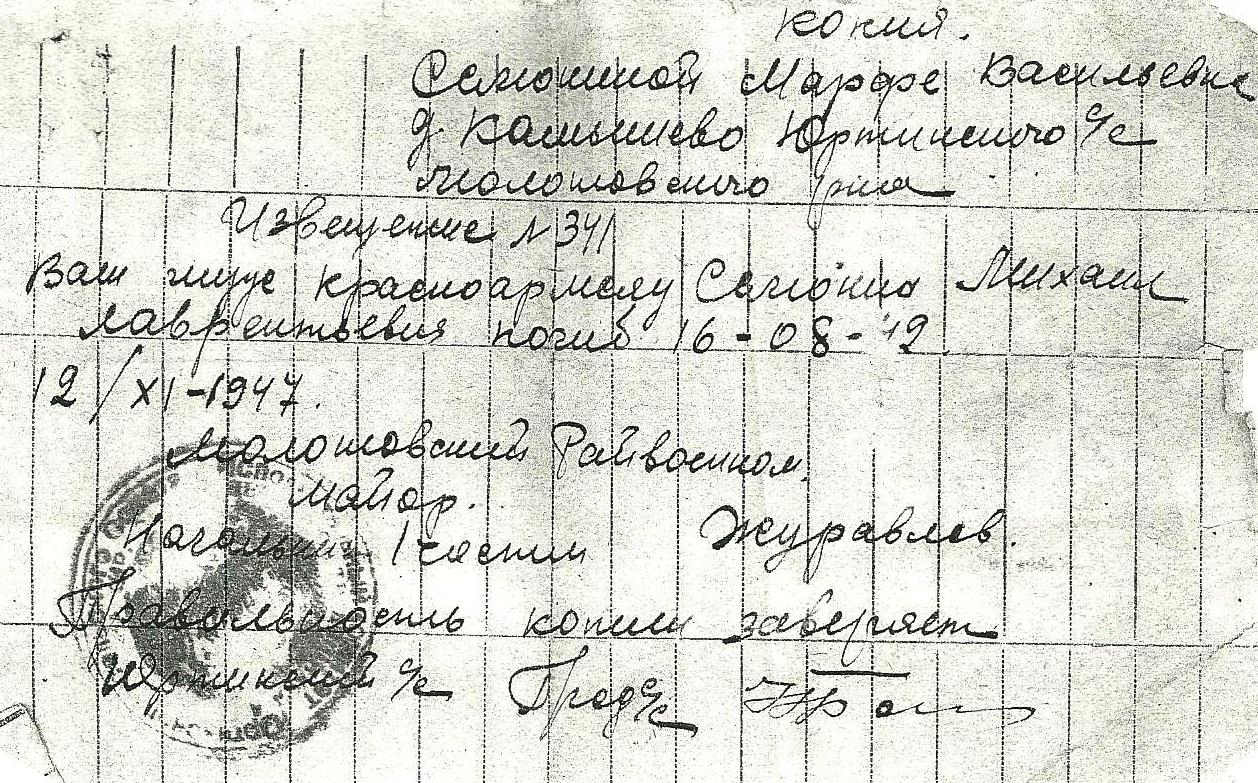 копия.
Селюниной Марфе Васильевне
д. Камышево Юртинского с/с
Молотовского р-на
Извещение № 341
Ваш муж красноармеец Селюнин Михаил
Лаврентьевич погиб 16-08-42
12/XI-1947.
Молотовский Райвоенком.
Майор.
Начальник 1 части Журавлев.
Правильность копии заверяет
Юртинский с/с Пред с/с